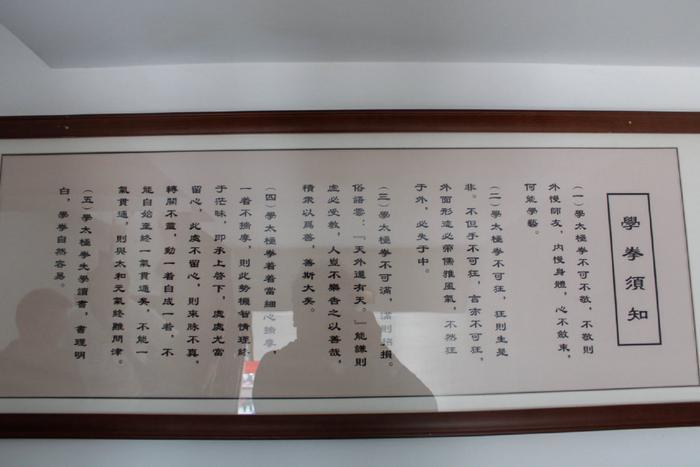 學拳須知
(一)學太極拳不可不敬，不敬則
外慢師友，内慢身體，心不斂束，
何能學藝。
(二)學太極拳不可狂，狂則生是
非。不但手不可狂，言亦不可狂，
外面形迹必帶儒雅風氣，不然狂
于外，必失于中。
(三)學太極拳不可滿，滿則招損。
俗語雲：『天外還有天。』能謙則
虚必受教，人豈不樂告之以善哉，
積衆以爲善，善斯大矣。
(四)學太極拳着着當細心揣摩，
一着不揣摩，則此勢機智情理終
于茫昧，即承上啓下，處處尤當
留心，此處不留心，則來脉不真，
轉關不靈，動一着自成一着，不
能自始至終一氣貫通矣，不能一
氣貫通，則與太和元氣終難問津。
(五)學太極拳先學讀書，書理明
白，學拳自然容易。